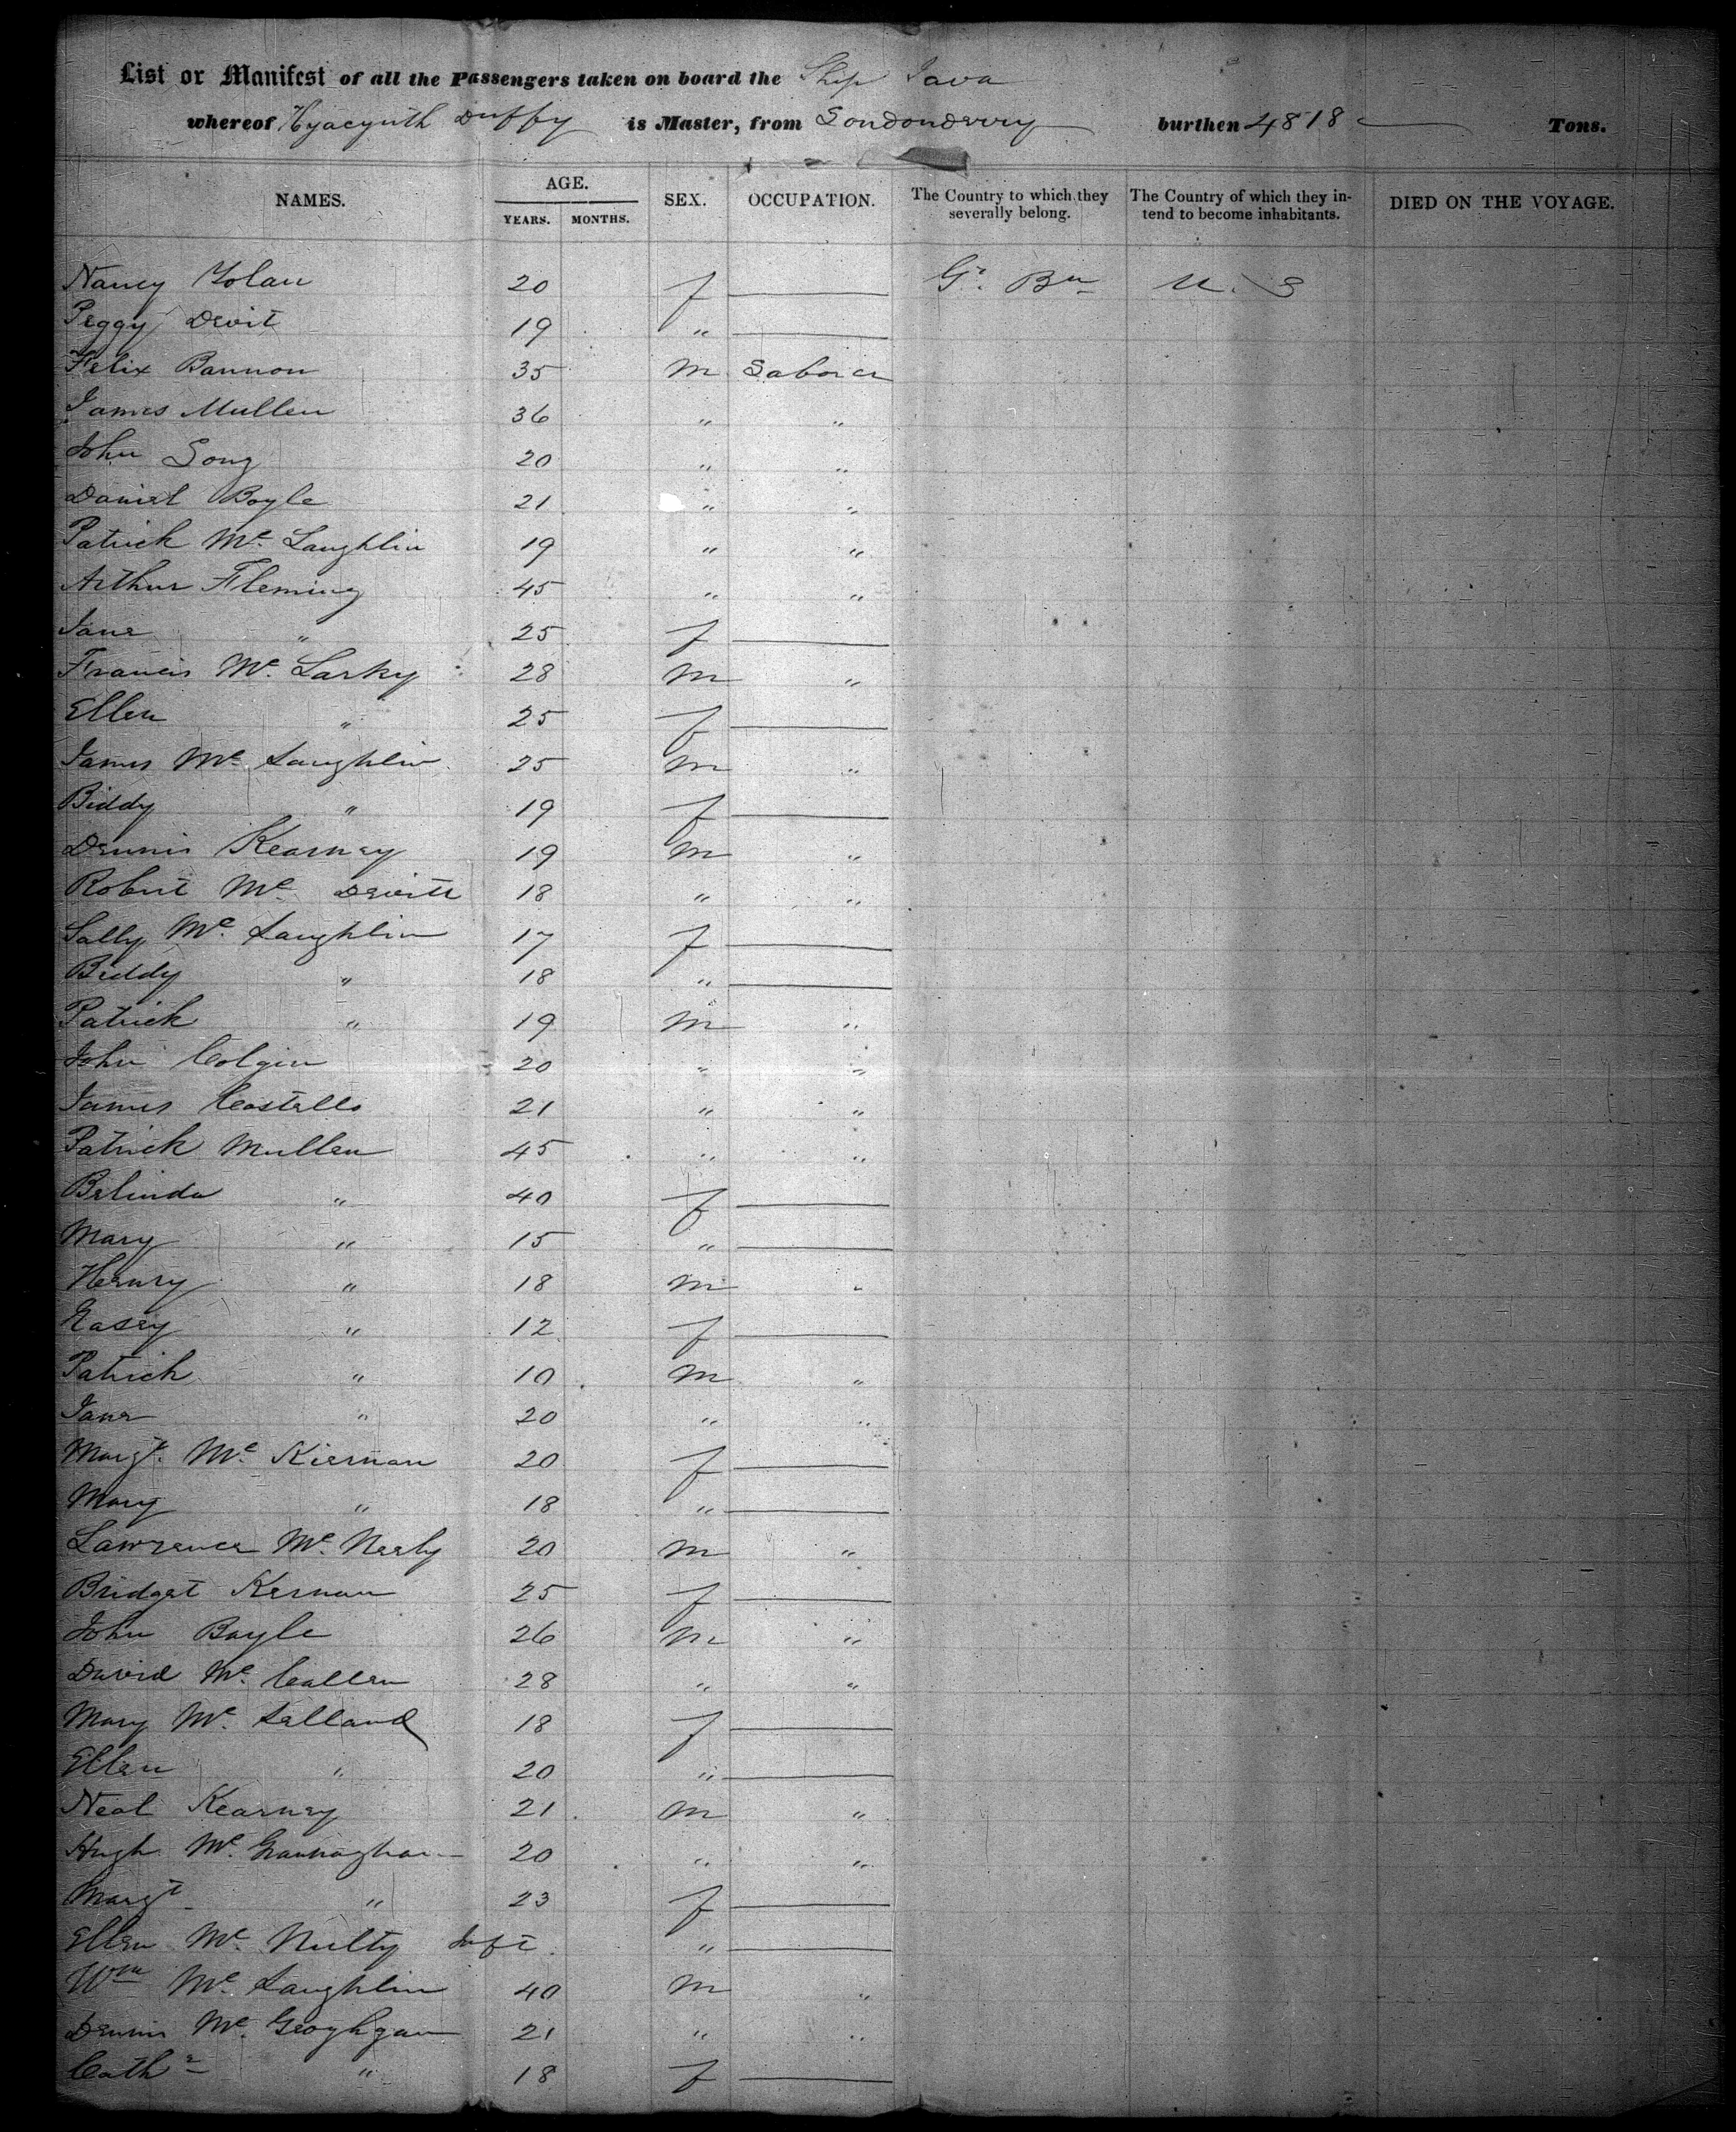 List or Manifest of all the Passengers taken on board the Ship Java
whereof Hyacynth Duffy is Master, from Londonderry burthen 4818 Tons.
NAMES. AGE. YEARS. MONTHS. SEX. OCCUPATION. The Country to which they severally belong. The Country of which they intend to become inhabitants. DIED ON THE VOYAGE.
Nancy 20 f — Gt. Bn U. S
Peggy Devit 19 " —
Felix Bannon 35 m Laborer
James Mullen 36 " "
John Long 20 " "
Daniel Boyle 21 " "
Patrick Mc Laughlin 19 " "
Arthur Fleming 45 " "
Jane " 25 f —
Francis Mc Larky 28 m "
Ellen " 25 f —
James Mc Laughlin 25 m "
Biddy " 19 f —
Dennis Kearney 19 m "
Robert Mc Devitt 18 " "
Sally Mc Laughlin 17 f —
Biddy " 18 " —
Patrick " 19 m "
John Colgin 20 " "
James Costello 21 " "
Patrick Mullen 45 " "
Belinda " 40 f —
Mary " 15 " —
Henry " 18 m "
Easey " 12 f —
Patrick " 10 m "
Jane " 20 " "
Margt. Mc Kiernan 20 f —
Mary " 18 " —
Lawrence Mc Neely 20 m "
Bridget Kernan 25 f —
John Boyle 26 m "
David Mc Callen 28 " "
Mary Mc Lelland 18 f —
Ellen " 20 " —
Neal Kearney 21 m "
Hugh Mc 20 " "
Margt " 23 f —
Ellen Mc Nulty Inft. " —
Wm Mc Laughlin 40 m "
Dennis Mc Geoghgan 21 " "
Cathe " 18 f —